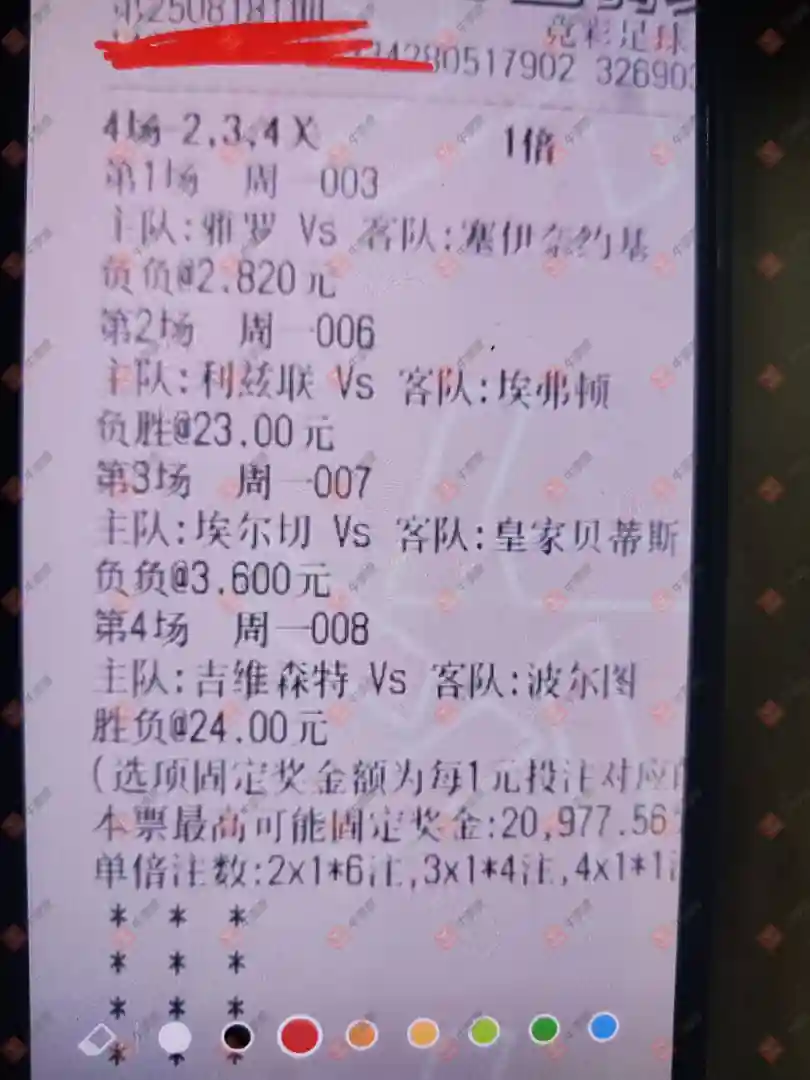 竞彩足球
80517902 32690
4场-2,3,4X 1倍
第1场 周一003
主队:雅罗 Vs 客队:塞伊奈约基
负负@2.820元
第2场 周一006
主队:利兹联 Vs 客队:埃弗顿
负胜@23.00元
第3场 周一007
主队:埃尔切 Vs 客队:皇家贝蒂斯
负负@3.600元
第4场 周一008
主队:吉维森特 Vs 客队:波尔图
胜负@24.00元
(选项固定奖金额为每1元投注对应
本票最高可能固定奖金:20,977.56
单倍注数:2x1*6注,3x1*4注,4x1*1注
* * *
* * *
* * *
* * *